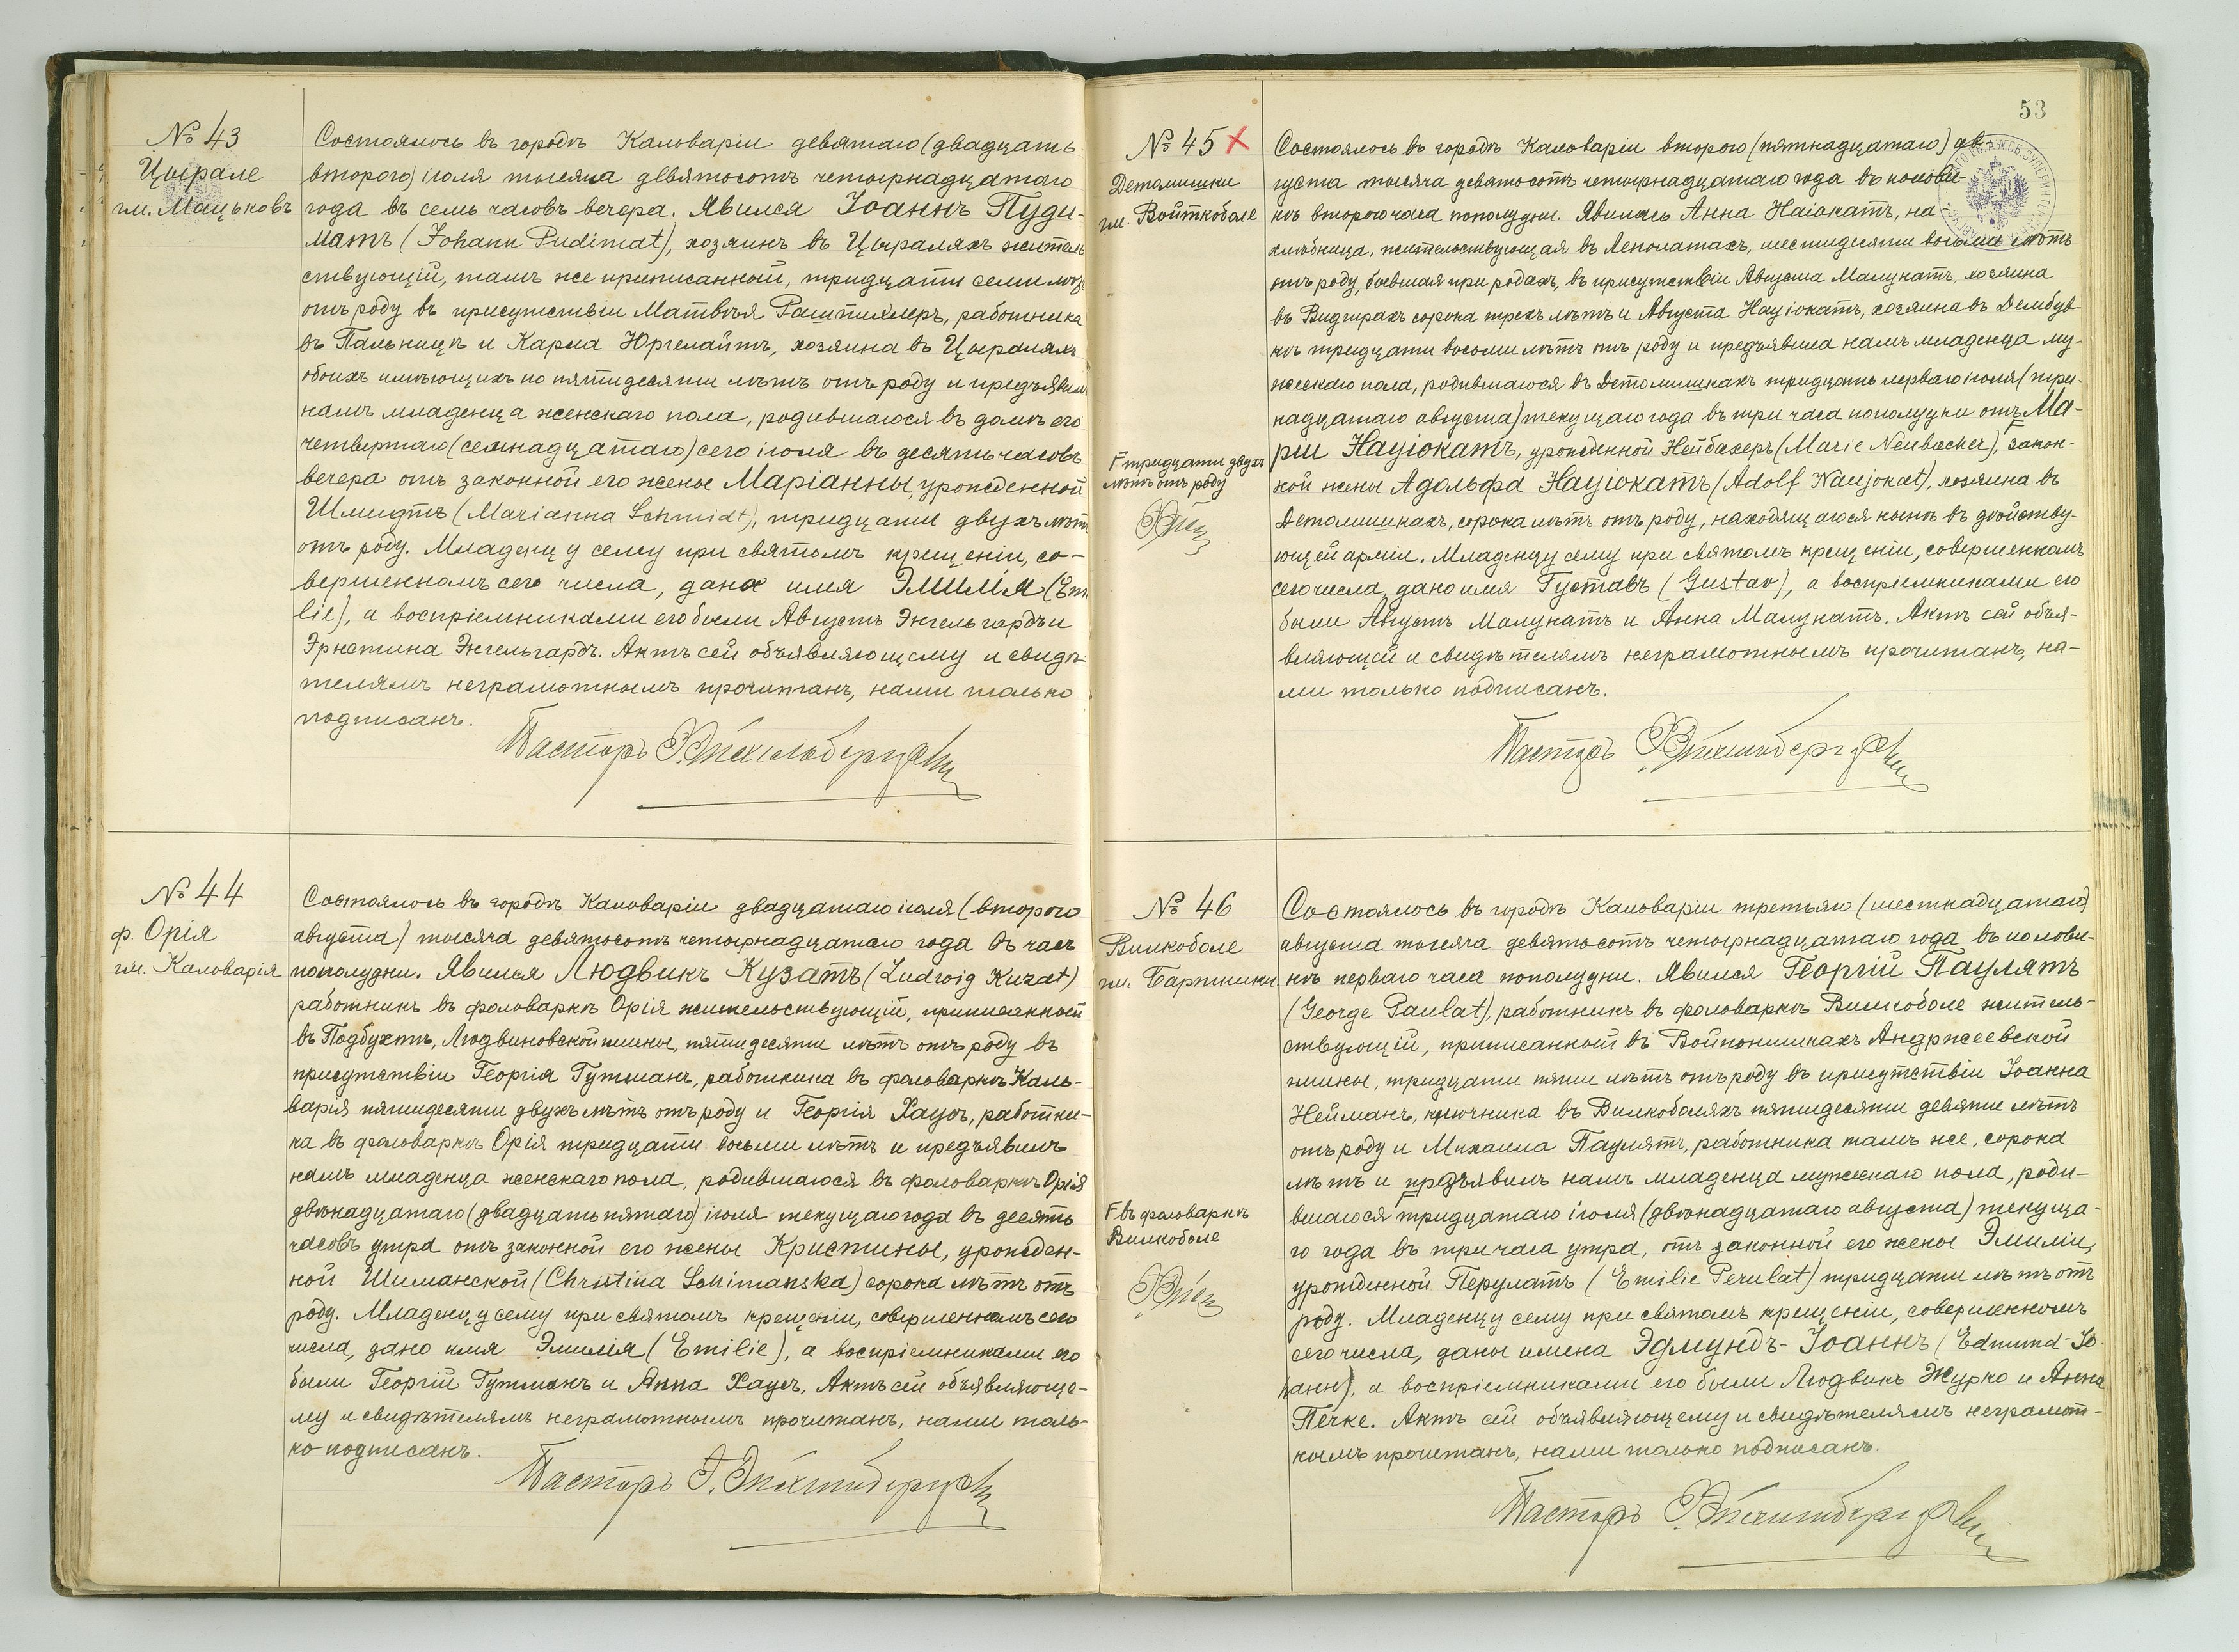 № 43
Цырале
гм. Мацьковъ
Состоялось въ городѣ Кальваріи девятаго (двадцать
второго) іюля тысяча девятьсотъ четырнадцатаго
года въ семь часовъ вечера. Явился Іоаннъ Пуди-
матъ (Johann Pudimat), хозяинъ въ Цыраляхъ житель
ствующій, тамъ же приписанный, тридцати семи лѣтъ
отъ роду въ присутствіи Матвѣя работника
въ и Карла Юргелайтъ, хозяина въ Цыраляхъ
обоихъ имѣющихъ по пятидесяти лѣтъ отъ роду и предъявилъ
намъ младенца женскаго пола, родившагося въ домѣ его
четвертаго (семнадцатаго) сего іюля въ десять часовъ
вечера отъ законной его жены Маріанны, урожденной
Шмидтъ (Marianna Schmidt), тридцати двухъ лѣтъ
отъ роду. Младенцу сему при святомъ крещеніи, со-
вершенномъ сего числа, дано имя Эмилія (Emi
lie), а воспріемниками его были Августъ Энгельгардъ и
Эрнстина Энгельгардъ. Актъ сей объявляющему и свидѣ-
телямъ неграмотнымъ прочитанъ, нами только
подписанъ.
Пасторъ
№ 44
ф. Орія
гм. Кальварія
Состоялось въ городѣ Кальваріи двадцатаго іюля (второго
августа) тысяча девятьсотъ четырнадцатаго года въ часъ
пополудни. Явился Людвикъ Кузатъ (Ludwig Kuzat)
работникъ въ фольваркѣ Орія жительствующій, приписанный
въ Подбухтѣ, Людвиновской гмины, пятидесяти лѣтъ отъ роду въ
присутствіи Георгія Гутманъ, работника въ фольваркѣ Каль-
варія пятидесяти двухъ лѣтъ отъ роду и Георгія Хаусъ, работни-
ка въ фольваркѣ Орія тридцати восьми лѣтъ и предъявилъ
намъ младенца женскаго пола, родившагося въ фольваркѣ Орія
двѣнадцатаго (двадцать пятаго) іюля текущаго года въ десять
часовъ утра отъ законной его жены Кристины, урожден-
ной Шиманской (Christina Schimanska) сорока лѣтъ отъ
роду. Младенцу сему при святомъ крещеніи, совершенномъ сего
числа, дано имя Эмилія (Emilie), а воспріемниками его
были Георгій Гутманъ и Анна Хаусъ. Актъ сей объявляюще-
му и свидѣтелямъ неграмотнымъ прочитанъ, нами толь-
ко подписанъ.
Пасторъ
53
№ 45 X
Детомишки
гм. Войткоболе
Состоялось въ городѣ Кальваріи второго (пятнадцатаго) ав-
густа тысяча девятьсотъ четырнадцатаго года въ полови-
нѣ второго часа пополудни. Явилась Анна Наіокатъ, на
хлѣбница, жительствующая въ шестидесяти восьми лѣтъ
отъ роду, бывшая при родахъ, въ присутствіи Августа Малукатъ, хозяина
въ Видгирахъ сорока трехъ лѣтъ и Августа Науіокатъ, хозяина въ Дембув-
кѣ тридцати восьми лѣтъ отъ роду и предъявила намъ младенца му-
жескаго пола, родившагося въ Детомишкахъ тридцать перваго іюля (три-
надцатаго августа) текущаго года въ три часа пополудни отъ Ма-
ріи Науіокатъ, урожденной Нейбахеръ (Marie Neubacher), Г закон-
ной жены Адольфа Науіокатъ (Adolf Naujokat), хозяина въ
Детомишкахъ, сорока лѣтъ отъ роду, находящагося нынѣ въ дѣйству-
ющей арміи. Младенцу сему при святомъ крещеніи, совершенномъ
сего числа, дано имя Густавъ (Gustav), а воспріемниками его
были Августъ Малукатъ и Анна Малукатъ. Актъ сей объя-
вляющей и свидѣтелямъ неграмотнымъ прочитанъ, на-
ми только подписанъ.
Г тридцати двухъ
лѣтъ отъ роду
Пасторъ
№ 46
Вилкоболе
гм. Бартники
Состоялось въ городѣ Кальваріи третьяго (шестнадцатаго)
августа тысяча девятьсотъ четырнадцатаго года въ полови-
нѣ перваго часа пополудни. Явился Георгій Паулятъ
(George Paulat), работникъ въ фольваркѣ Вилкоболе житель-
ствующій, приписанный въ Андржеевской
гмины, тридцати пяти лѣтъ отъ роду въ присутствіи Іоанна
Нейманъ, ключника въ Вилкоболяхъ пятидесяти девяти лѣтъ
отъ роду и Михаила Паулятъ, работника тамъ же, сорока
лѣтъ и предъявилъ намъ младенца мужескаго пола, роди-
вшагося Г тридцатаго іюля (двѣнадцатаго августа) текуща-
го года въ три часа утра, отъ законной его жены Эмиліи,
урожденной Перулатъ (Emilie Perulat) тридцати лѣтъ отъ
роду. Младенцу сему при святомъ крещеніи, совершенномъ
сего числа, даны имена Эдмундъ-Іоаннъ (Edmund-Jo-
hann), а воспріемниками его были Людвикъ Журко и Анна
Печке. Актъ сей объявляющему и свидѣтелямъ неграмот-
нымъ прочитанъ, нами только подписанъ.
Г въ фольваркѣ
Вилкоболе
Пасторъ